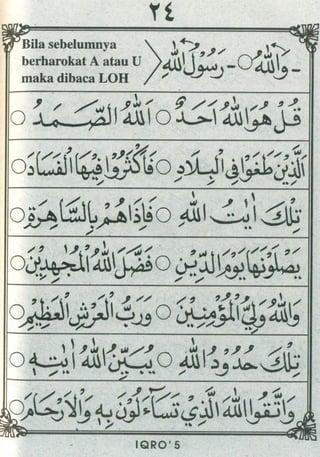 ٢٤
Bila sebelumnya
berharokat A atau U
maka dibaca LOH
- وَاللّٰهُ ○ - رَسُوْلُ اللّٰهِ
قُلْ هُوَ اللّٰهُ اَحَدٌ ○ اَللّٰهُ الصَّمَدُ ○
الَّذِيْنَ طَغَوْا فِى الْبِلَادِ ○ فَاَكْثَرُوْا فِيْهَا الْفَسَادَ ○
تِلْكَ اٰيٰتُ اللّٰهِ ○ فَاِذَا هُمْ بِالسَّاهِرَةِ ○
يَصْلَوْنَهَا يَوْمَ الدِّيْنِ ○ فَضَّلَ اللّٰهُ الْمُجٰهِدِيْنَ ○
وَاللّٰهُ وَلِيُّ الْمُؤْمِنِيْنَ ○ وَرَبُّ الْعَرْشِ الْعَظِيْمِ ○
تِلْكَ حُدُوْدُ اللّٰهِ ○ يُبَيِّنُ اللّٰهُ اٰيٰتِهٖ ○
وَاتَّقُوا اللّٰهَ الَّذِيْ تَسَآءَلُوْنَ بِهٖ وَالْاَرْحَامَ ○
IQRO' 5